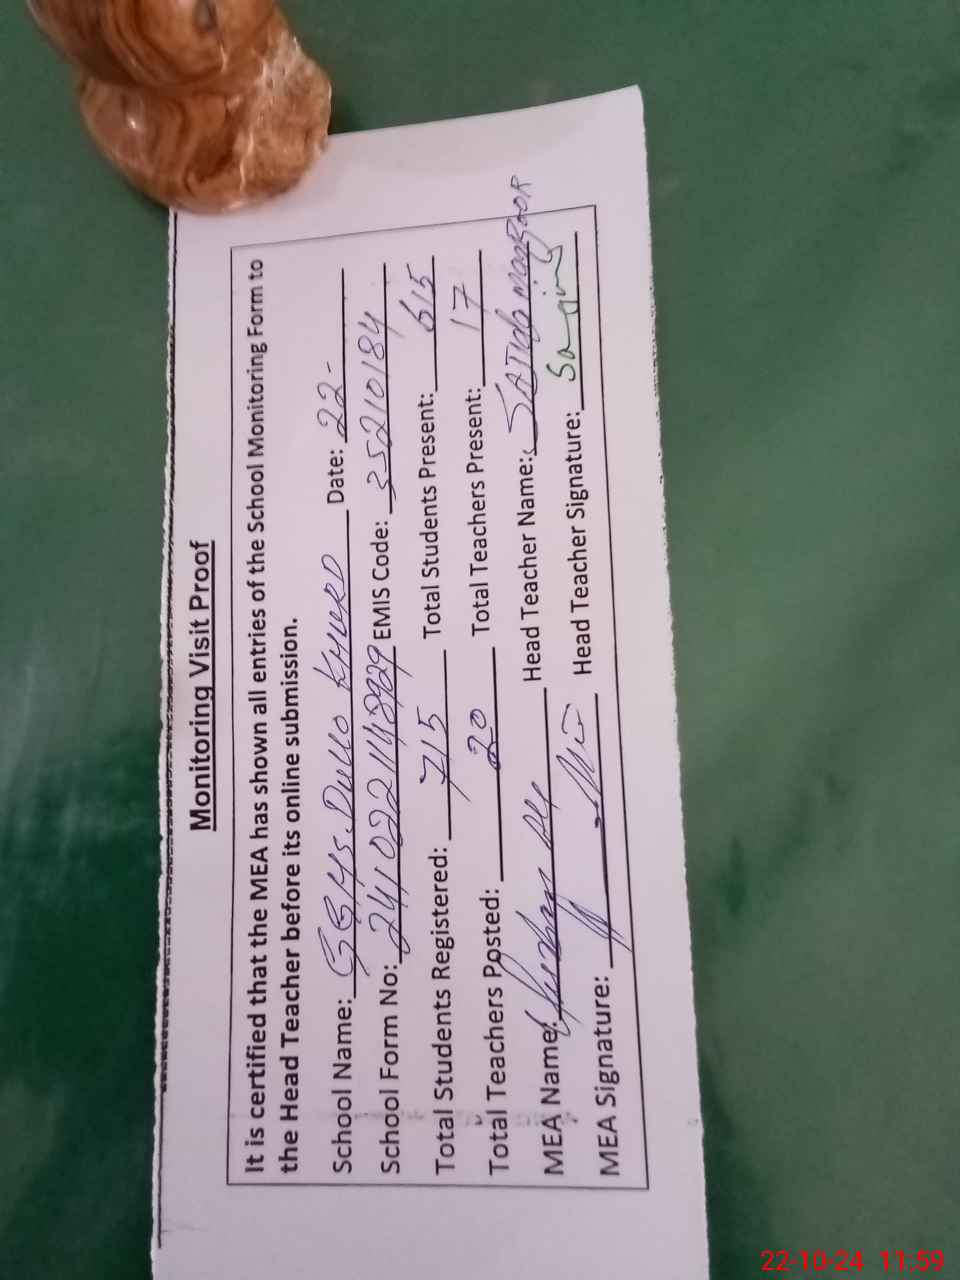 Monitoring Visit Proof
It is certified that the MEA has shown all entries of the School Monitoring Form to
the Head Teacher before its online submission.
School Name: GGHS. Dullo KHURD Date: 22-
School Form No: EMIS Code: 35210184
Total Students Registered: 715 Total Students Present: 615
Total Teachers Posted: 20 Total Teachers Present: 17
MEA Name: Head Teacher Name: SAJIda
MEA Signature: Head Teacher Signature:
22-10-24 11:59